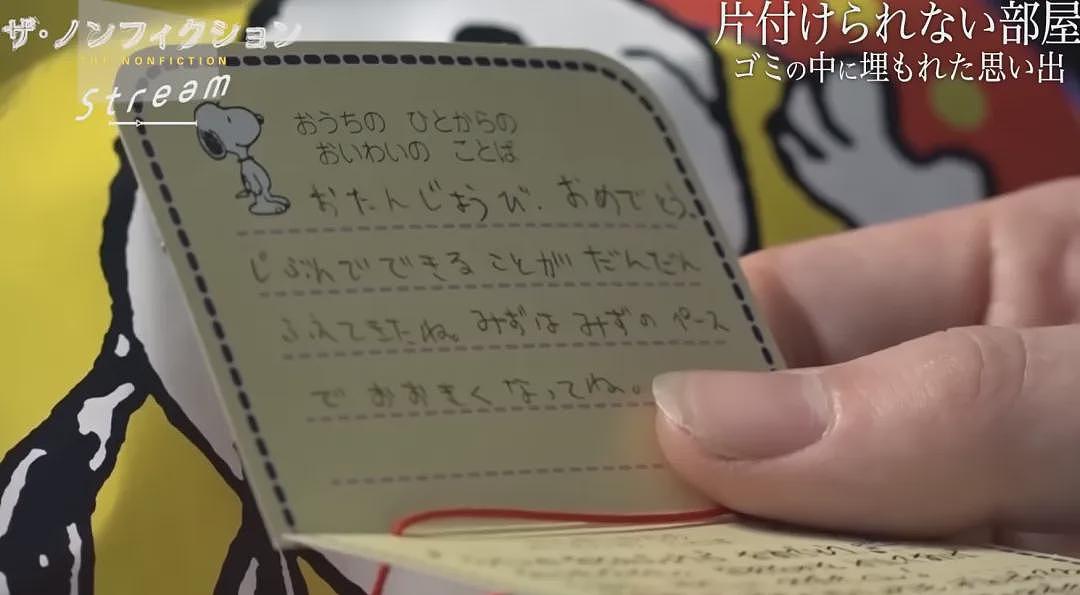 ザ・ノンフィクション
THE NONFICTION
Stream
片付けられない部屋
ゴミの中に埋もれた思い出
おうちの ひとからの
おいわいの ことば
おたんじょうび、おめでとう。
じぶんでできることがだんだん
ふえてきたね。みずはみずのペース
でおおきくなってね。